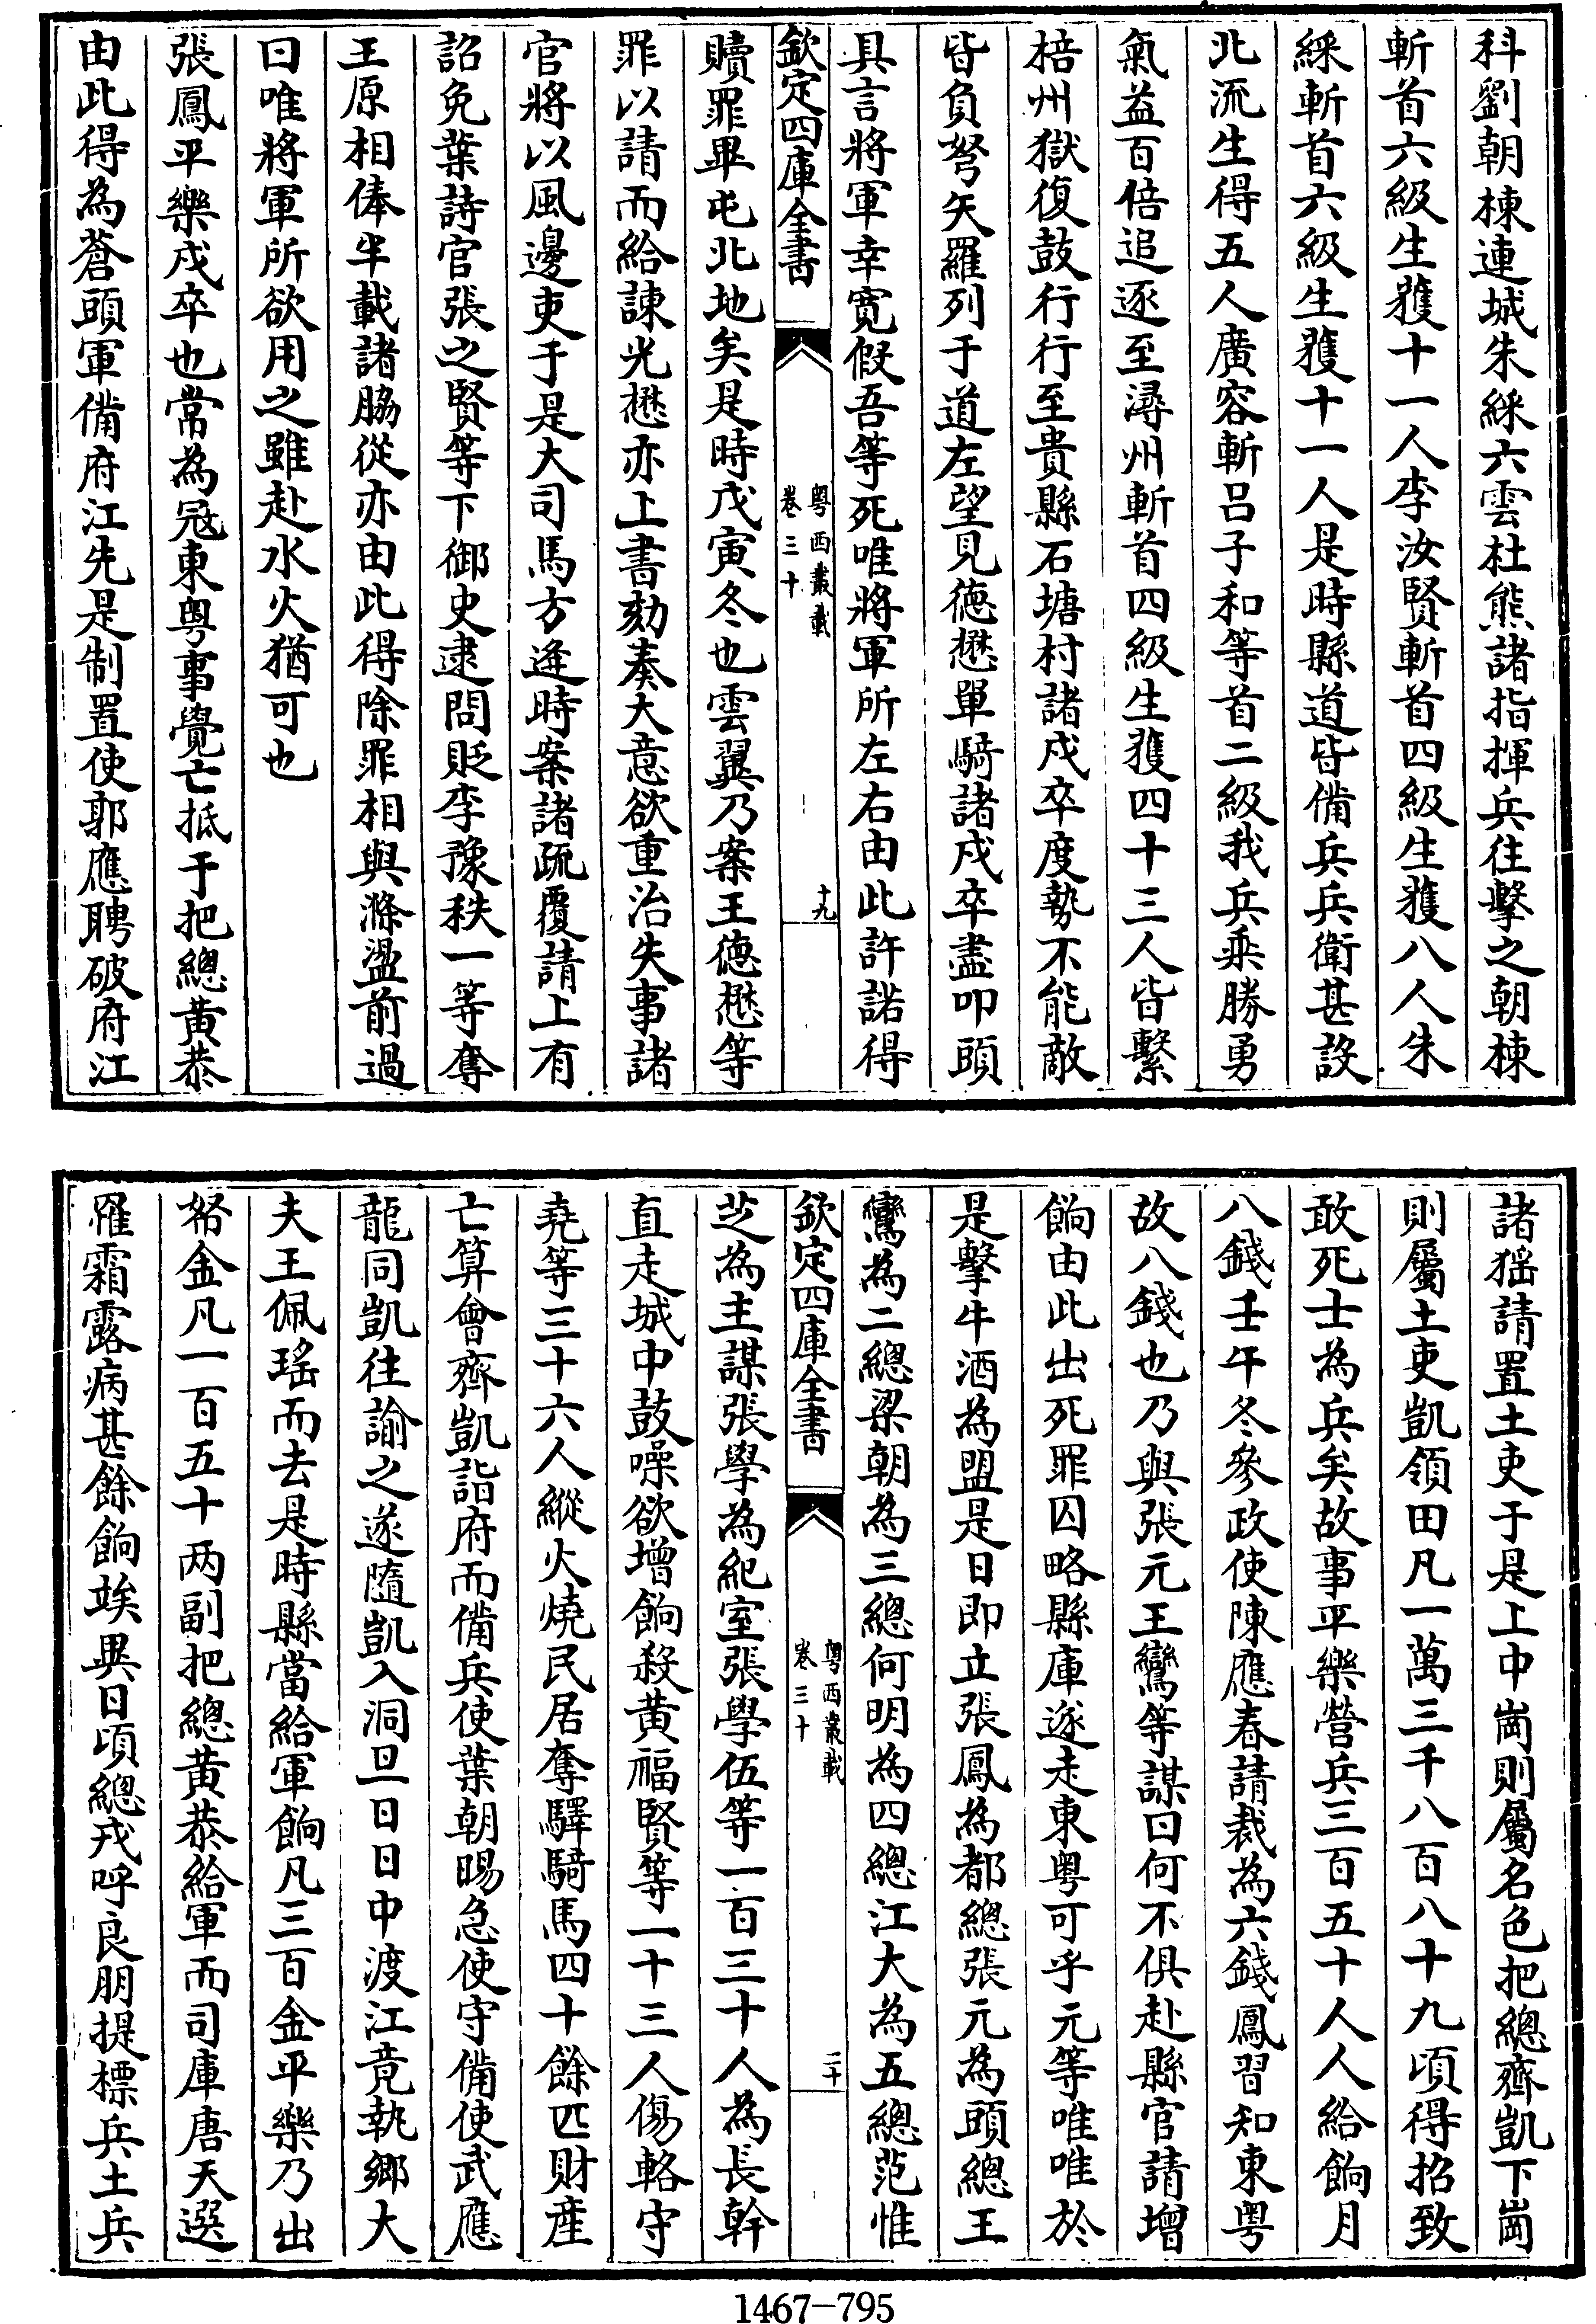 科劉朝棟連城朱綵六雲杜熊諸指揮兵往擊之朝棟
斬首六級生獲十一人李汝賢斬首四級生獲八人朱
綵斬首六級生獲十一人是時縣道皆備兵兵衛甚設
北流生得五人廣容斬呂子和等首二級我兵乘勝勇
氣益百倍追逐至潯州斬首四級生獲四十三人皆繫
梧州獄復鼓行行至貴縣石塘村諸戍卒度勢不能敵
皆負弩矢羅列于道左望見德懋單騎諸戍卒盡叩頭
具言將軍幸寛假吾等死唯將軍所左右由此許諾得
欽定四庫全書
粤西叢載
卷三十
十九
贖罪畢屯北地矣是時戊寅冬也雲翼乃案王德懋等
罪以請而給諫光懋亦上書劾奏大意欲重治失事諸
官將以風邊吏于是大司馬方逄時案諸疏覆請上有
詔免葉詩官張之賢等下御史逮問貶李豫秩一等奪
王原相俸半載諸脇從亦由此得除罪相與滌盪前過
曰唯將軍所欲用之雖赴水火猶可也
張鳳平樂戍卒也常為冦東粤事覺亡抵于把總黄恭
由此得為蒼頭軍備府江先是制置使郭應聘破府江
諸猺請置土吏于是上中崗則屬名色把總齊凱下崗
則屬土吏凱領田凡一萬三千八百八十九頃得招致
敢死士為兵矣故事平樂營兵三百五十人人給餉月
八錢壬午冬參政使陳應春請裁為六錢鳳習知東粤
故八錢也乃與張元王鸞等謀曰何不俱赴縣官請增
餉由此出死罪囚略縣庫遂走東粤可乎元等唯唯於
是擊牛酒為盟是日即立張鳳為都總張元為頭總王
鸞為二總梁朝為三總何明為四總江大為五總范惟
欽定四庫全書
粤西叢載
卷三十
二十
芝為主謀張學為紀室張學伍等一百三十人為長幹
直走城中鼓噪欲增餉殺黄福賢等一十三人傷輅守
堯等三十六人縱火燒民居奪驛騎馬四十餘匹財産
亡算會齊凱詣府而備兵使葉朝暘急使守備使武應
龍同凱往諭之遂隨凱入洞旦日日中渡江竟執鄉大
夫王佩瑤而去是時縣當給軍餉凡三百金平樂乃出
帑金凡一百五十两副把總黄恭給軍而司庫唐天選
罹霜露病甚餘餉竢異日頃總戎呼良朋提標兵土兵
1467-795